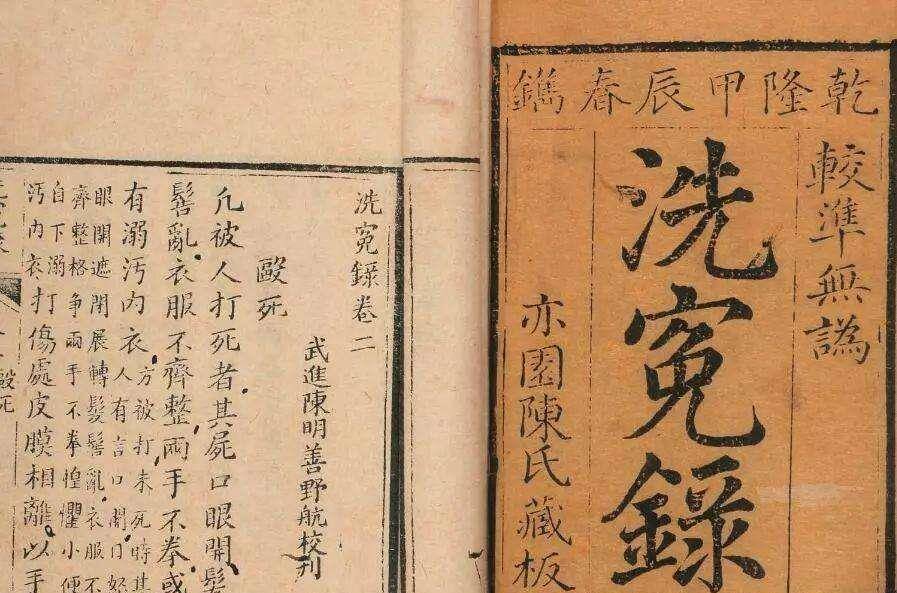 乾隆甲辰春鐫
較準無譌
洗寃錄
亦園陳氏藏板
洗寃錄卷二
武進陳明善野航校刊
毆死
凢被人打死者其屍口眼開髮
髻亂衣服不齊整兩手不拳或
有溺汚內衣方被打未死時其
人有言口開目怒
眼開遮閉展轉髮髻亂衣服不
齊整格爭兩手不拳惶懼小便
自下溺
汚內衣打傷處皮膜相離以手
毆死